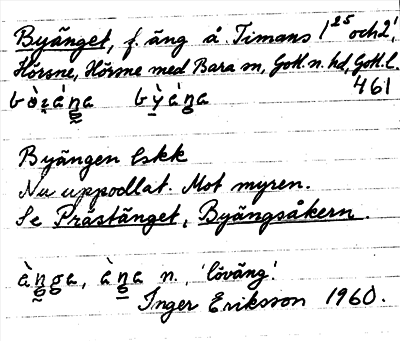 Byänget, f. äng å Timans 1²⁵ och 2¹,
Hörsne, Hörsne med Bara sn, Gotl. n. hd, Gotl. l.
461
Byängen Eskk
Nu uppodlat. Mot myren.
Se Prästänget, Byängsåkern.
ànga, àna n., 'löväng'.
Inger Eriksson 1960.